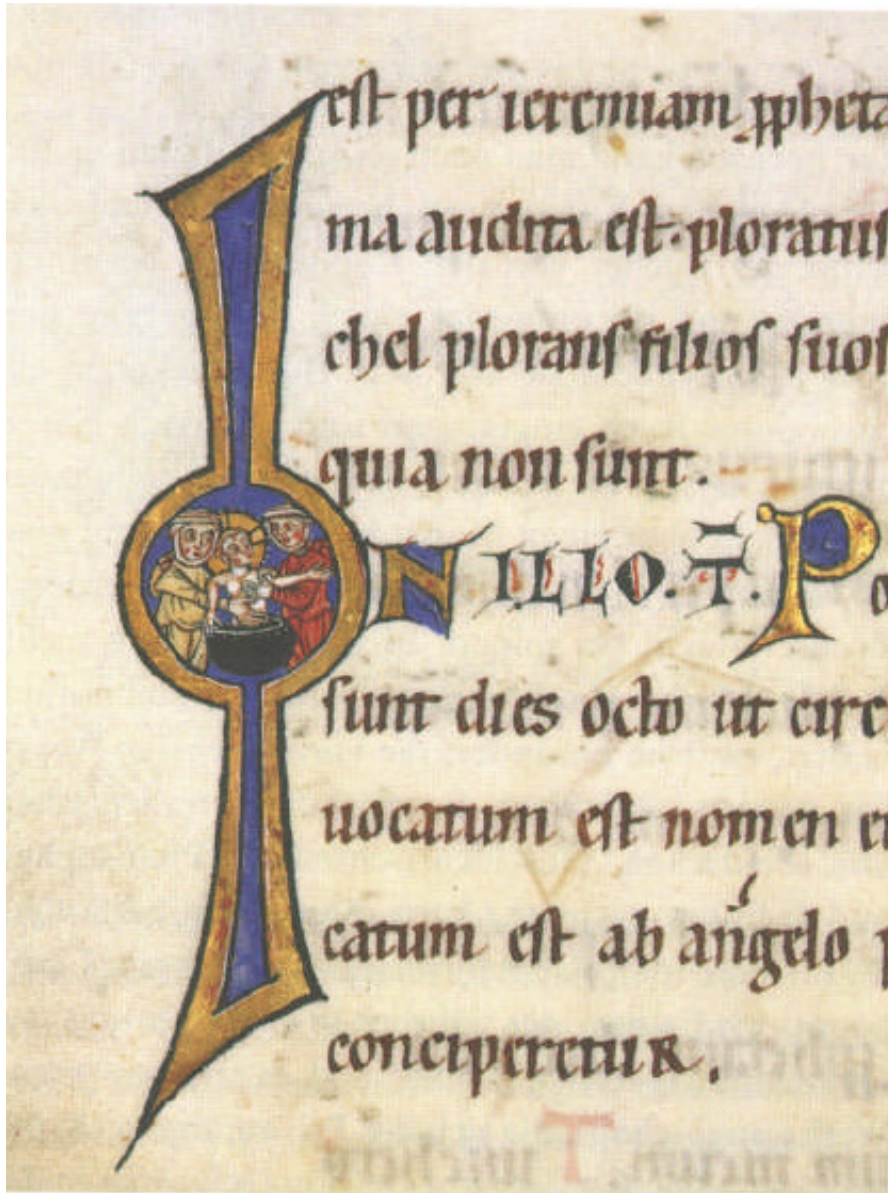 est per ieremiam ꝓpheta
ma audita est. ploratus
chel plorans filios suos
quia non sunt.
IN ILLO. T̄. P
sunt dies octo ut circ
uocatum est nomen ei
catum est ab angelo p
conciperetur.